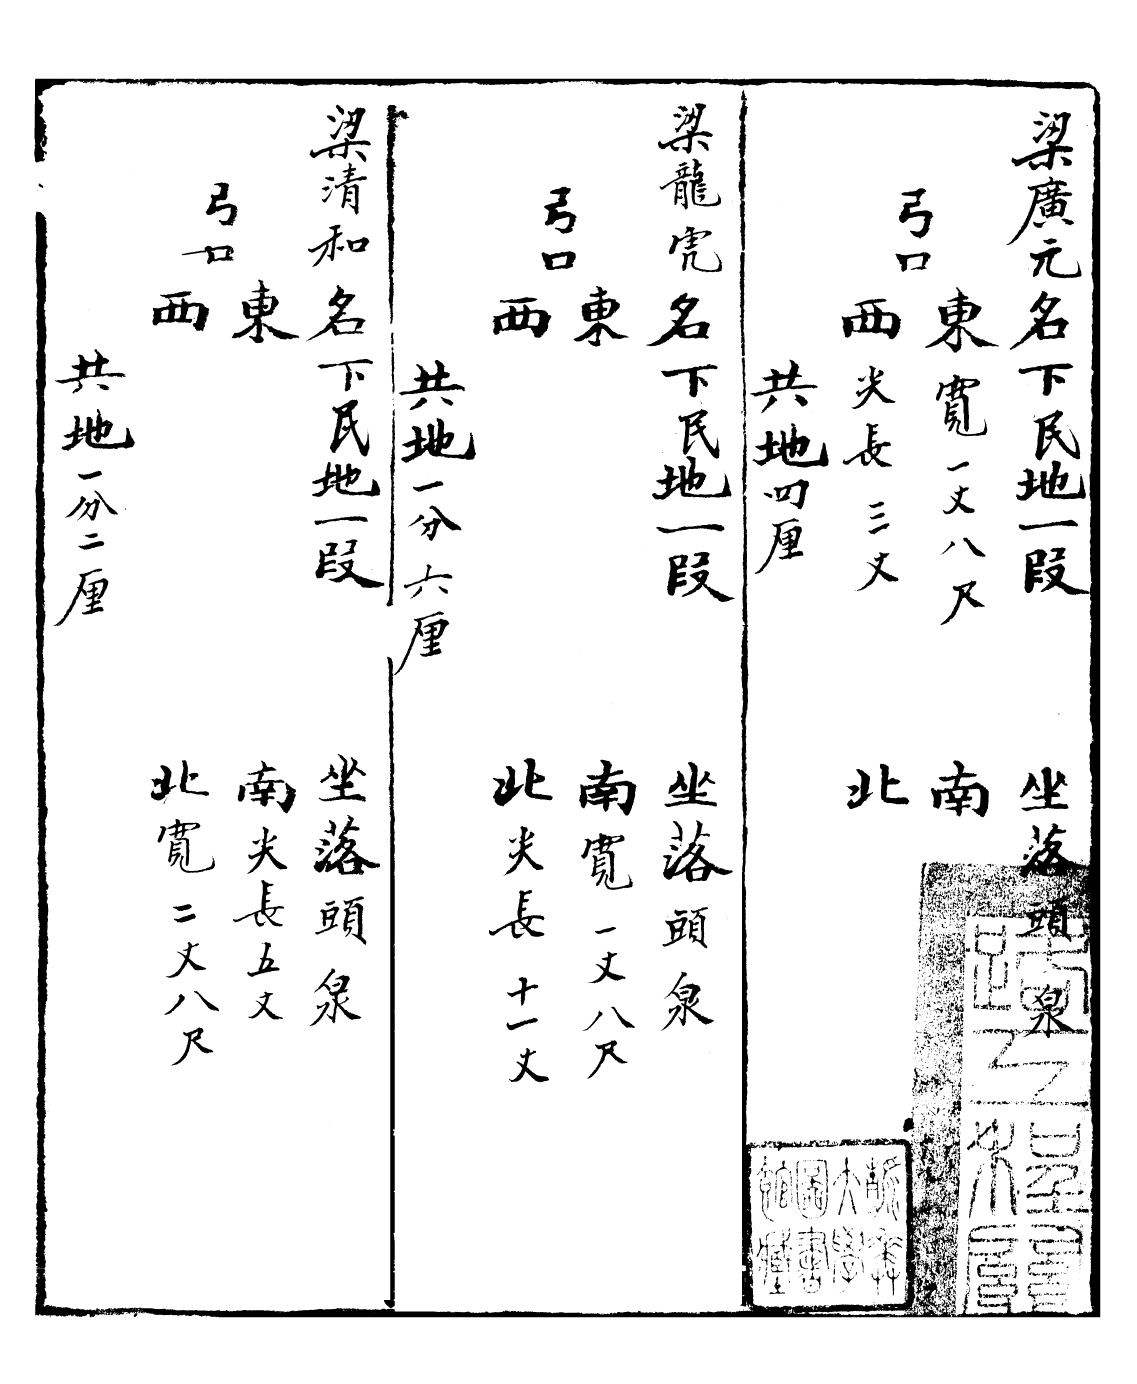 梁廣元名下民地一段　坐落頭泉
東寬一丈八尺　南
弓口
西尖長三丈　北
共地四厘
梁龍虎名下民地一段　坐落頭泉
東　南寬一丈八尺
弓口
西　北尖長十一丈
共地一分六厘
梁清和名下民地一段　坐落頭泉
東　南尖長五丈
弓口
西　北寬二丈八尺
共地一分二厘
大學
圖書
館藏